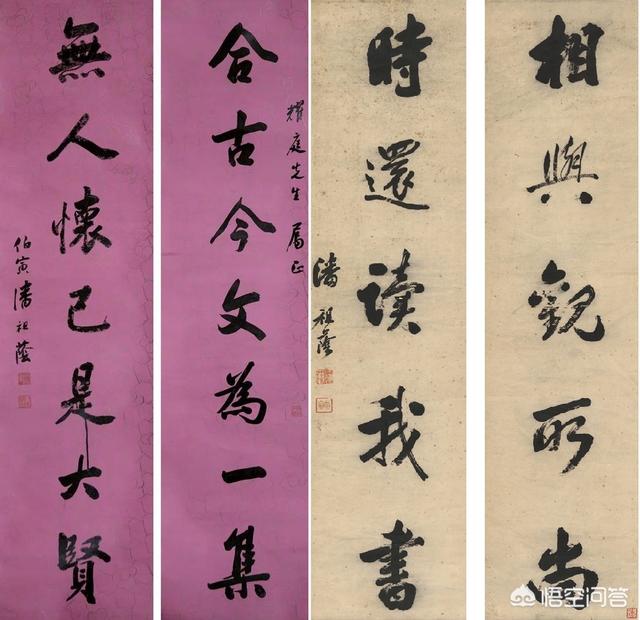 相與觀所尚
時還讀我書
潘祖蔭
耀庭先生屬正
合古今文為一集
無人懷己是大賢
伯寅潘祖蔭
悟空问答